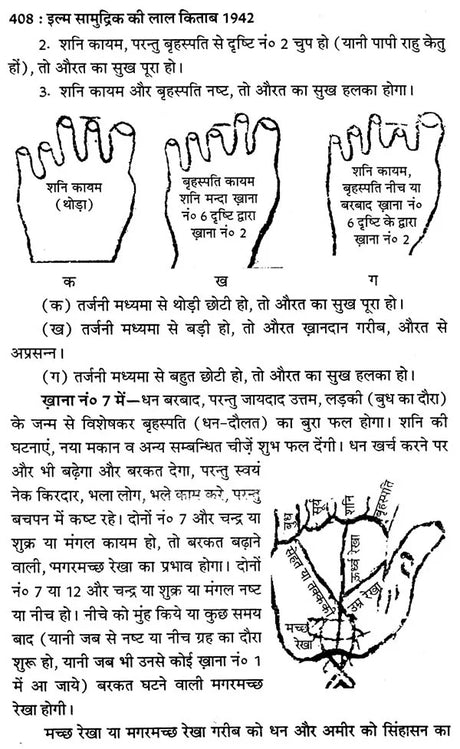 408 : इल्म सामुद्रिक की लाल किताब 1942
2. शनि कायम, परन्तु बृहस्पति से दृष्टि नं० 2 चुप हो (यानी पापी राहु केतु
हों), तो औरत का सुख पूरा हो।
3. शनि कायम और बृहस्पति नष्ट, तो औरत का सुख हलका होगा।
शनि कायम
(थोड़ा)
बृहस्पति कायम
शनि मन्दा ख़ाना
नं०
6 दृष्टि द्वारा
ख़ाना नं० 2
शनि कायम,
बृहस्पति नीच या
बरबाद ख़ाना नं०
6 दृष्टि के द्वारा
ख़ाना नं० 2
क
ख
ग
(क) तर्जनी मध्यमा से थोड़ी छोटी हो, तो औरत का सुख पूरा हो।
(ख) तर्जनी मध्यमा से बड़ी हो, तो औरत ख़ानदान गरीब, औरत से
अप्रसन्न।
(ग) तर्जनी मध्यमा से बहुत छोटी हो, तो औरत का सुख हलका हो।
ख़ाना नं० 7 में—धन बरबाद, परन्तु जायदाद उत्तम, लड़की (बुध का दौरा)
के जन्म से विशेषकर बृहस्पति (धन-दौलत) का बुरा फल होगा। शनि की
घटनाएं, नया मकान व अन्य सम्बन्धित चीज़ें शुभ फल देंगी। धन खर्च करने पर
और भी बढ़ेगा और बरकत देगा, परन्तु स्वयं
नेक किरदार, भला लोग, भले काम करे, परन्तु
बचपन में कष्ट रहे। दोनों नं० 7 और चन्द्र या
शुक्र या मंगल कायम हो, तो बरकत बढ़ाने
वाली, मगरमच्छ रेखा का प्रभाव होगा। दोनों
नं० 7 या 12 और चन्द्र या शुक्र या मंगल नष्ट
या नीच हो। नीचे को मुंह किये या कुछ समय
बाद (यानी जब से नष्ट या नीच ग्रह का दौरा
शुरू हो, यानी जब भी उनसे कोई ख़ाना नं० 1
में आ जाये) बरकत घटने वाली मगरमच्छ
रेखा होगी।
बुध
सूर्य
शनि
बृहस्पति
सेहत या तरक्की
ऊर्ध्व रेखा
उम्र रेखा
मच्छ
रेखा
मच्छ रेखा या मगरमच्छ रेखा गरीब को धन और अमीर को सिंहासन का